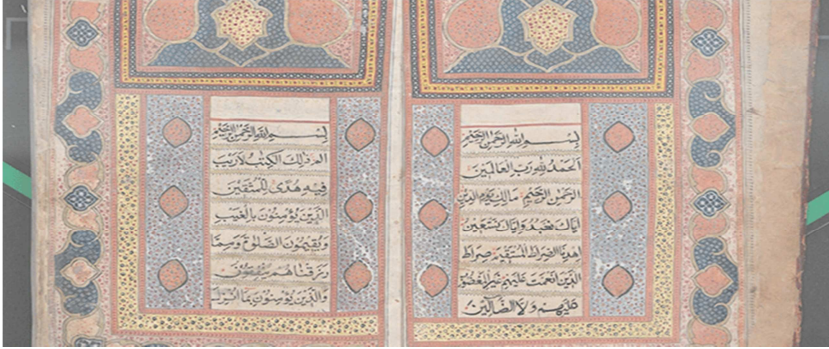 بِسْمِ اللهِ الرَّحْمٰنِ الرَّحِيْمِ
اَلْحَمْدُ لِلّٰهِ رَبِّ الْعَالَمِيْنَ
الرَّحْمٰنِ الرَّحِيْمِ مَالِكِ يَوْمِ الدِّيْنِ
اِيَّاكَ نَعْبُدُ وَاِيَّاكَ نَسْتَعِيْنُ
اِهْدِنَا الصِّرَاطَ الْمُسْتَقِيْمَ صِرَاطَ
الَّذِيْنَ اَنْعَمْتَ عَلَيْهِمْ غَيْرِ الْمَغْضُوْبِ
عَلَيْهِمْ وَلَا الضَّالِّيْنَ
بِسْمِ اللهِ الرَّحْمٰنِ الرَّحِيْمِ
الم ذٰلِكَ الْكِتٰبُ لَارَيْبَ
فِيْهِ هُدًى لِّلْمُتَّقِيْنَ
الَّذِيْنَ يُؤْمِنُوْنَ بِالْغَيْبِ
وَيُقِيْمُوْنَ الصَّلٰوةَ وَمِمَّا
رَزَقْنَاهُمْ يُنْفِقُوْنَ
وَالَّذِيْنَ يُؤْمِنُوْنَ بِمَا اُنْزِلَ